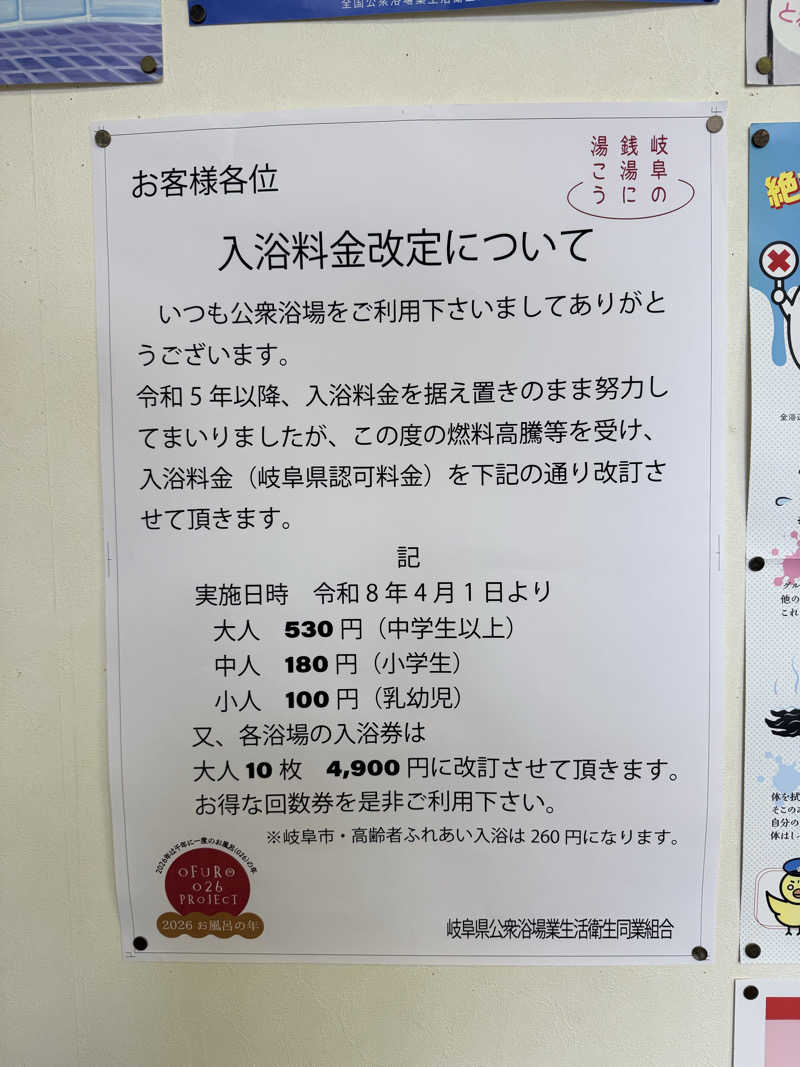 全国公衆浴場業生活衛生
お客様各位
岐阜の
銭湯に
湯こう
入浴料金改定について
いつも公衆浴場をご利用下さいましてありがと
うございます。
令和5年以降、入浴料金を据え置きのまま努力し
てまいりましたが、この度の燃料高騰等を受け、
入浴料金（岐阜県認可料金）を下記の通り改訂さ
せて頂きます。
記
実施日時　令和8年4月1日より
大人　530円（中学生以上）
中人　180円（小学生）
小人　100円（乳幼児）
又、各浴場の入浴券は
大人10枚　4,900円に改訂させて頂きます。
お得な回数券を是非ご利用下さい。
※岐阜市・高齢者ふれあい入浴は260円になります。
2026年は千年に一度のお風呂(026)の年
OFURO
026
PROJECT
2026お風呂の年
岐阜県公衆浴場業生活衛生同業組合
絶
他の
これ
体を拭
そこの
自分の
体はし